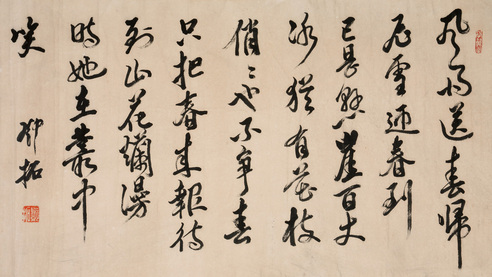 風雨送春歸
飛雪迎春到
已是懸崖百丈
冰猶有花枝
俏々也不爭春
只把春來報待
到山花爛漫
時她在叢中
笑
鄧拓